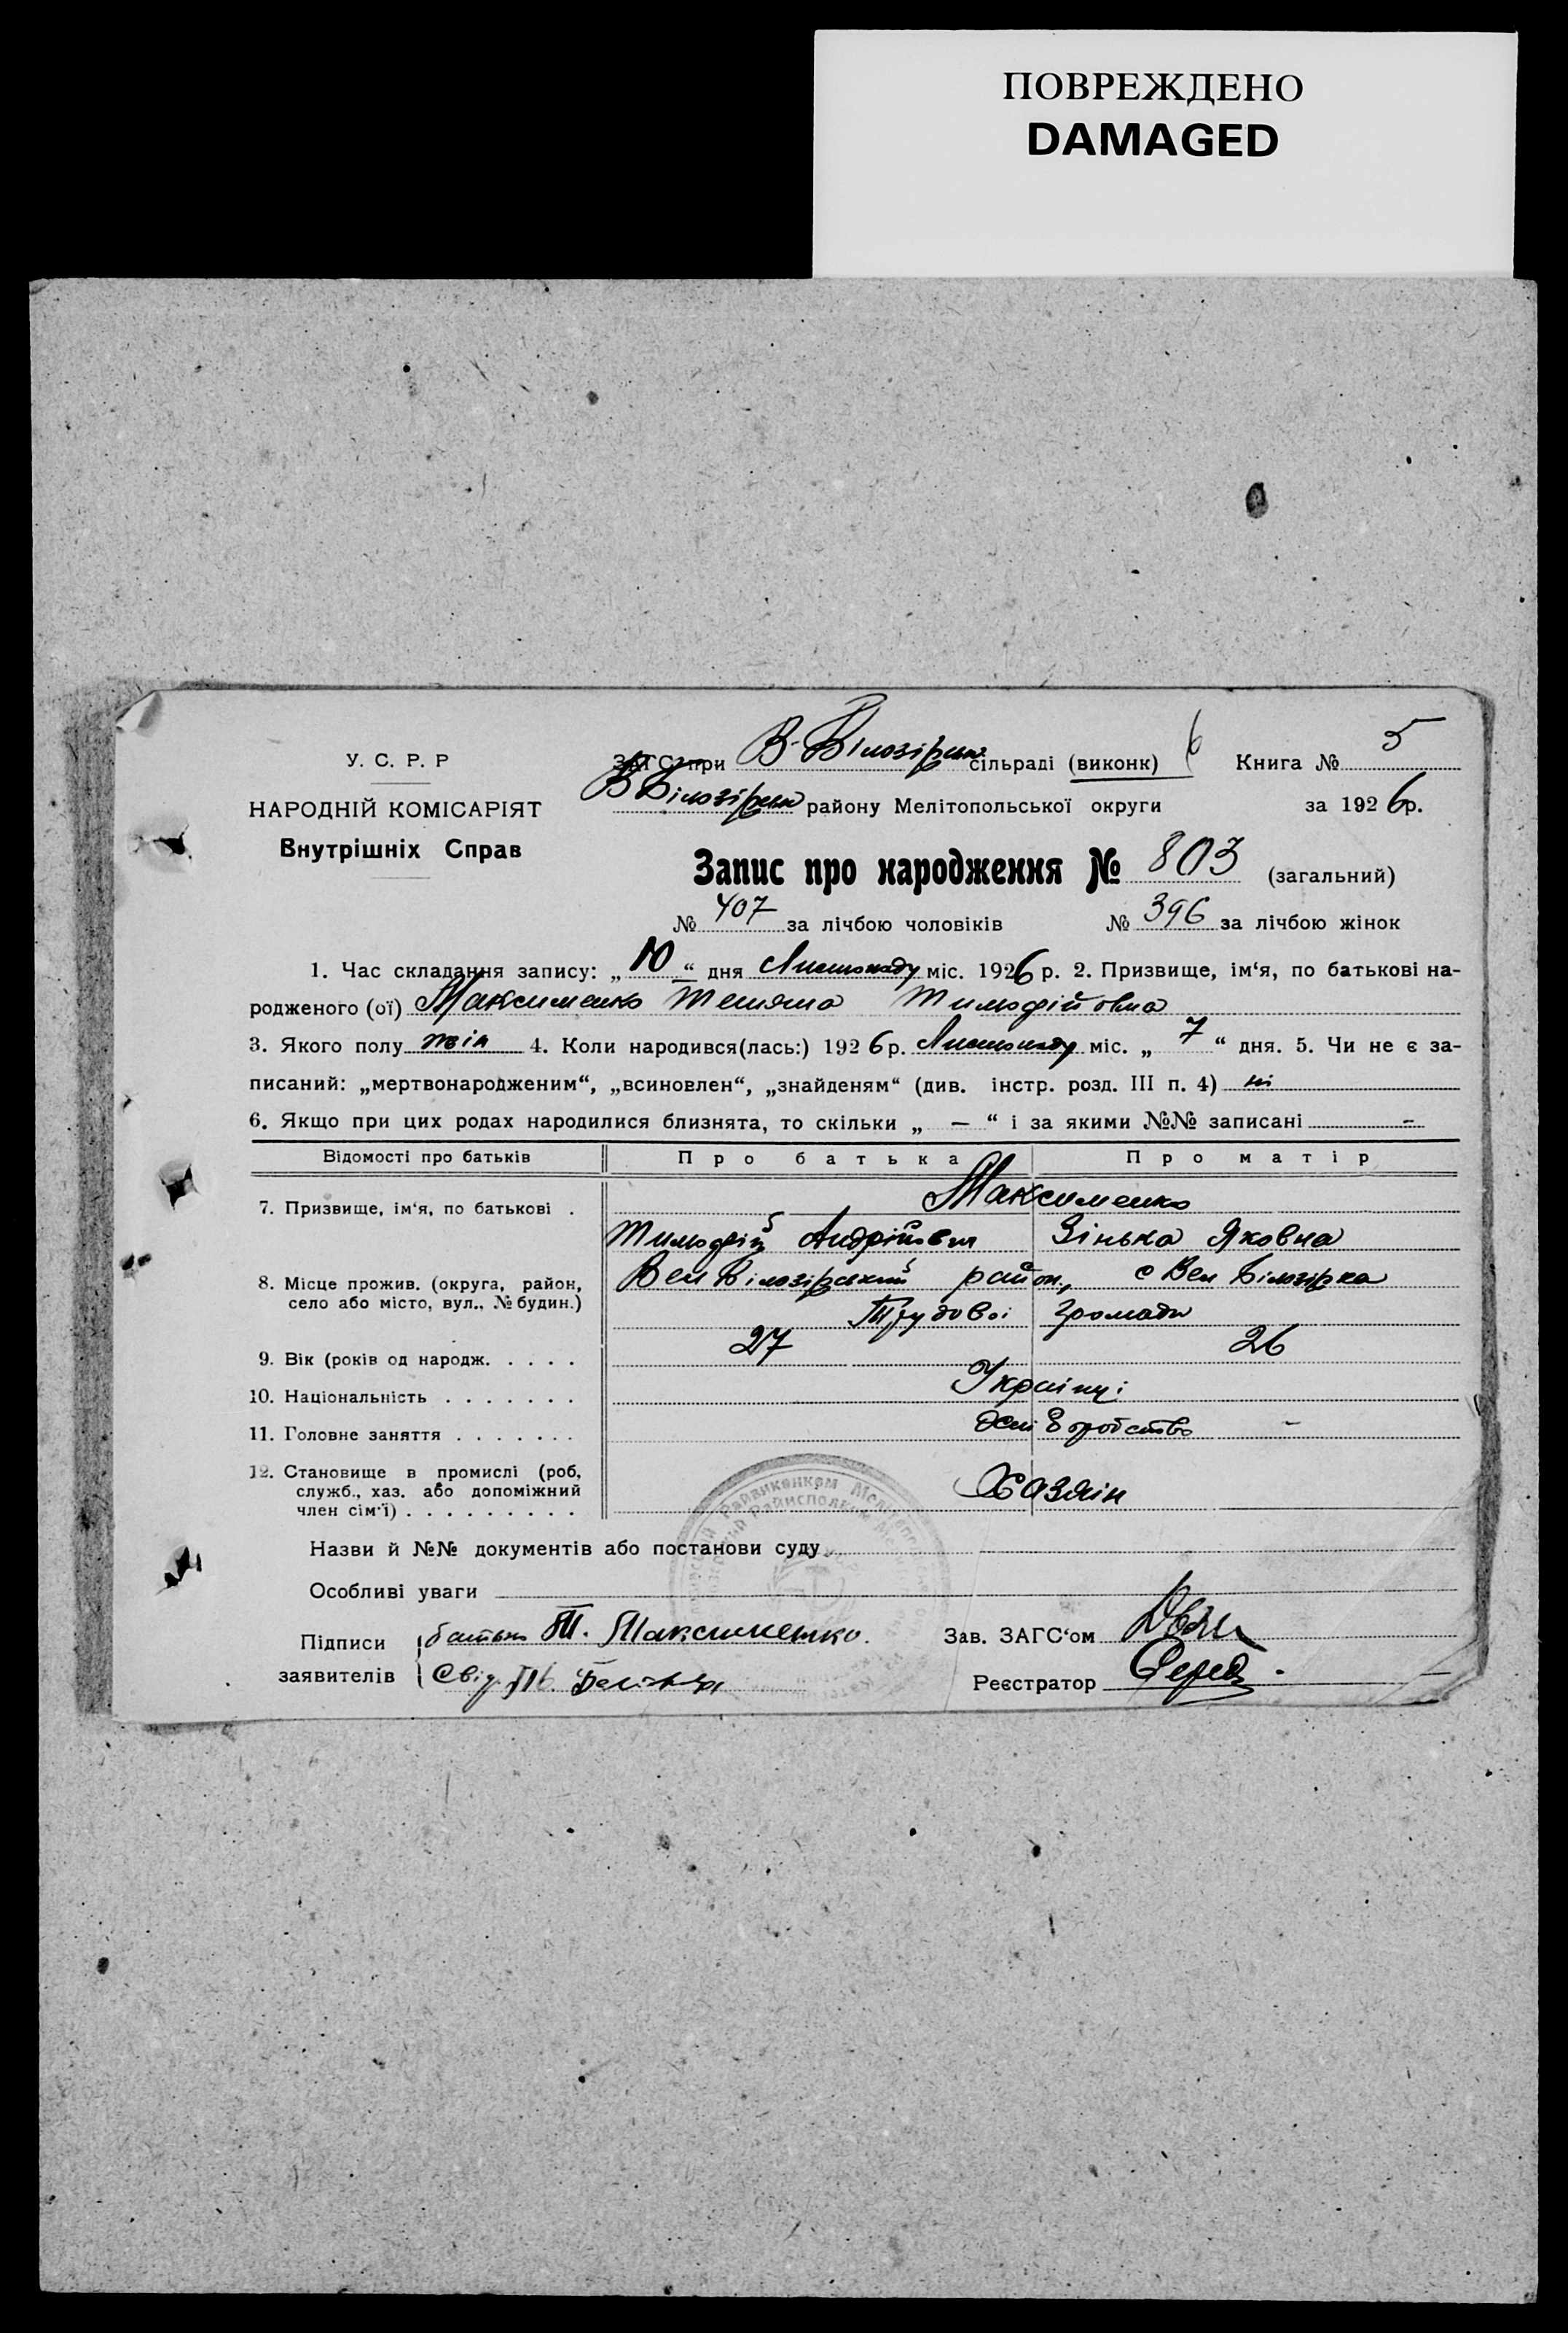 ПОВРЕЖДЕНО
DAMAGED
У. С. Р. Р
НАРОДНІЙ КОМІСАРІЯТ
Внутрішніх Справ
ЗАГС при В-Білозірськ сільраді (виконк) 6 Книга № 5
В Білозірськ району Мелітопольської округи за 1926 р.
Запис про народження № 803 (загальний)
№ 407 за лічбою чоловіків № 396 за лічбою жінок
1. Час складання запису: „10“ дня Листопаду міс. 1926 р. 2. Призвище, ім‘я, по батькові на-
родженого (ої) Максименко Тетяна Тимофійовна
3. Якого полу жін 4. Коли народився(лась:) 1926 р. Листопаду міс. „7“ дня. 5. Чи не є за-
писаний: „мертвонародженим“, „всиновлен“, „знайденям“ (див. інстр. розд. III п. 4) ні
6. Якщо при цих родах народилися близнята, то скільки „ — “ і за якими №№ записані –
Відомості про батьків Про батька Про матір
7. Призвище, ім‘я, по батькові . Максименко
Тимофій Андрійович Зінька Яковна
8. Місце прожив. (округа, район, Вел Білозірський район, с Вел Білозірка
село або місто, вул., № будин.)
Трудової громади
9. Вік (років од народж. . . . . 27 26
10. Національність . . . . . . . Українці
11. Головне заняття . . . . . . . –
12. Становище в промислі (роб, служб., хаз. або допоміжний член сім‘ї) . . . . . . . . . Хазяін
Назви й №№ документів або постанови суду
Особливі уваги
Підписи батько Т. Максименко. Зав. ЗАГС‘ом
заявителів Свід. Реєстратор